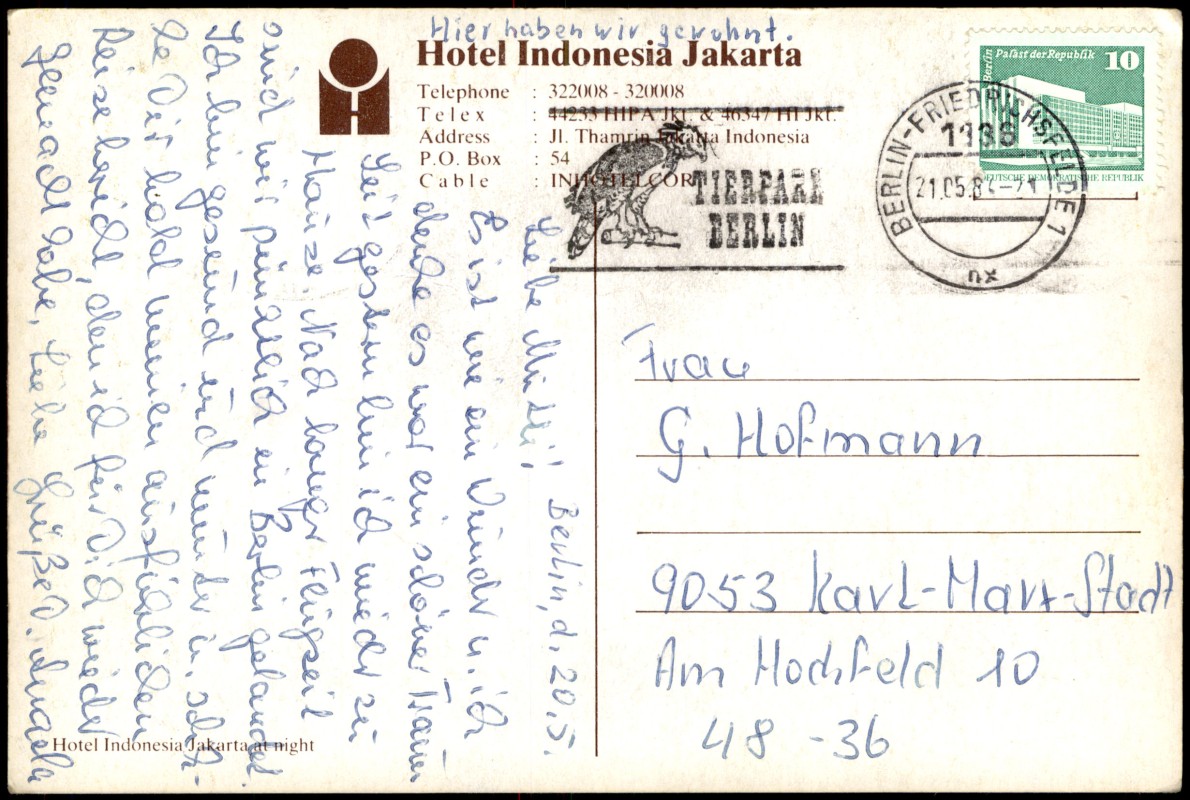 Hier haben wir gewohnt.
Hotel Indonesia Jakarta
Telephone : 322008 - 320008
Telex : 44233 HIPA Jkt. & 46347 HI Jkt.
Address : Jl. Thamrin Jakarta Indonesia
P.O. Box : 54
Cable : INHOTELCOR
TIERPARK
BERLIN
Berlin Palast der Republik 10
DEUTSCHE DEMOKRATISCHE REPUBLIK
BERLIN-FRIEDRICHSFELDE 1
1136
21.05.84-21
ux
Berlin, d. 20.5.
Liebe Mutti!
Es ist wie ein Wunder u. ich
denke es war ein schöner Traum
Seit gestern bin ich wieder zu
Hause. Nach langer Flugzeit
sind wir pünktlich in Berlin gelandet.
Ich bin gesund und munter u. schik-
ke Dir bald meinen ausführlichen
Reisebericht, den ich für Dich wieder
gemacht habe, Liebe Grüße D.
Frau
G. Hofmann
9053 Karl-Marx-Stadt
Am Hochfeld 10
48 - 36
Hotel Indonesia Jakarta at night